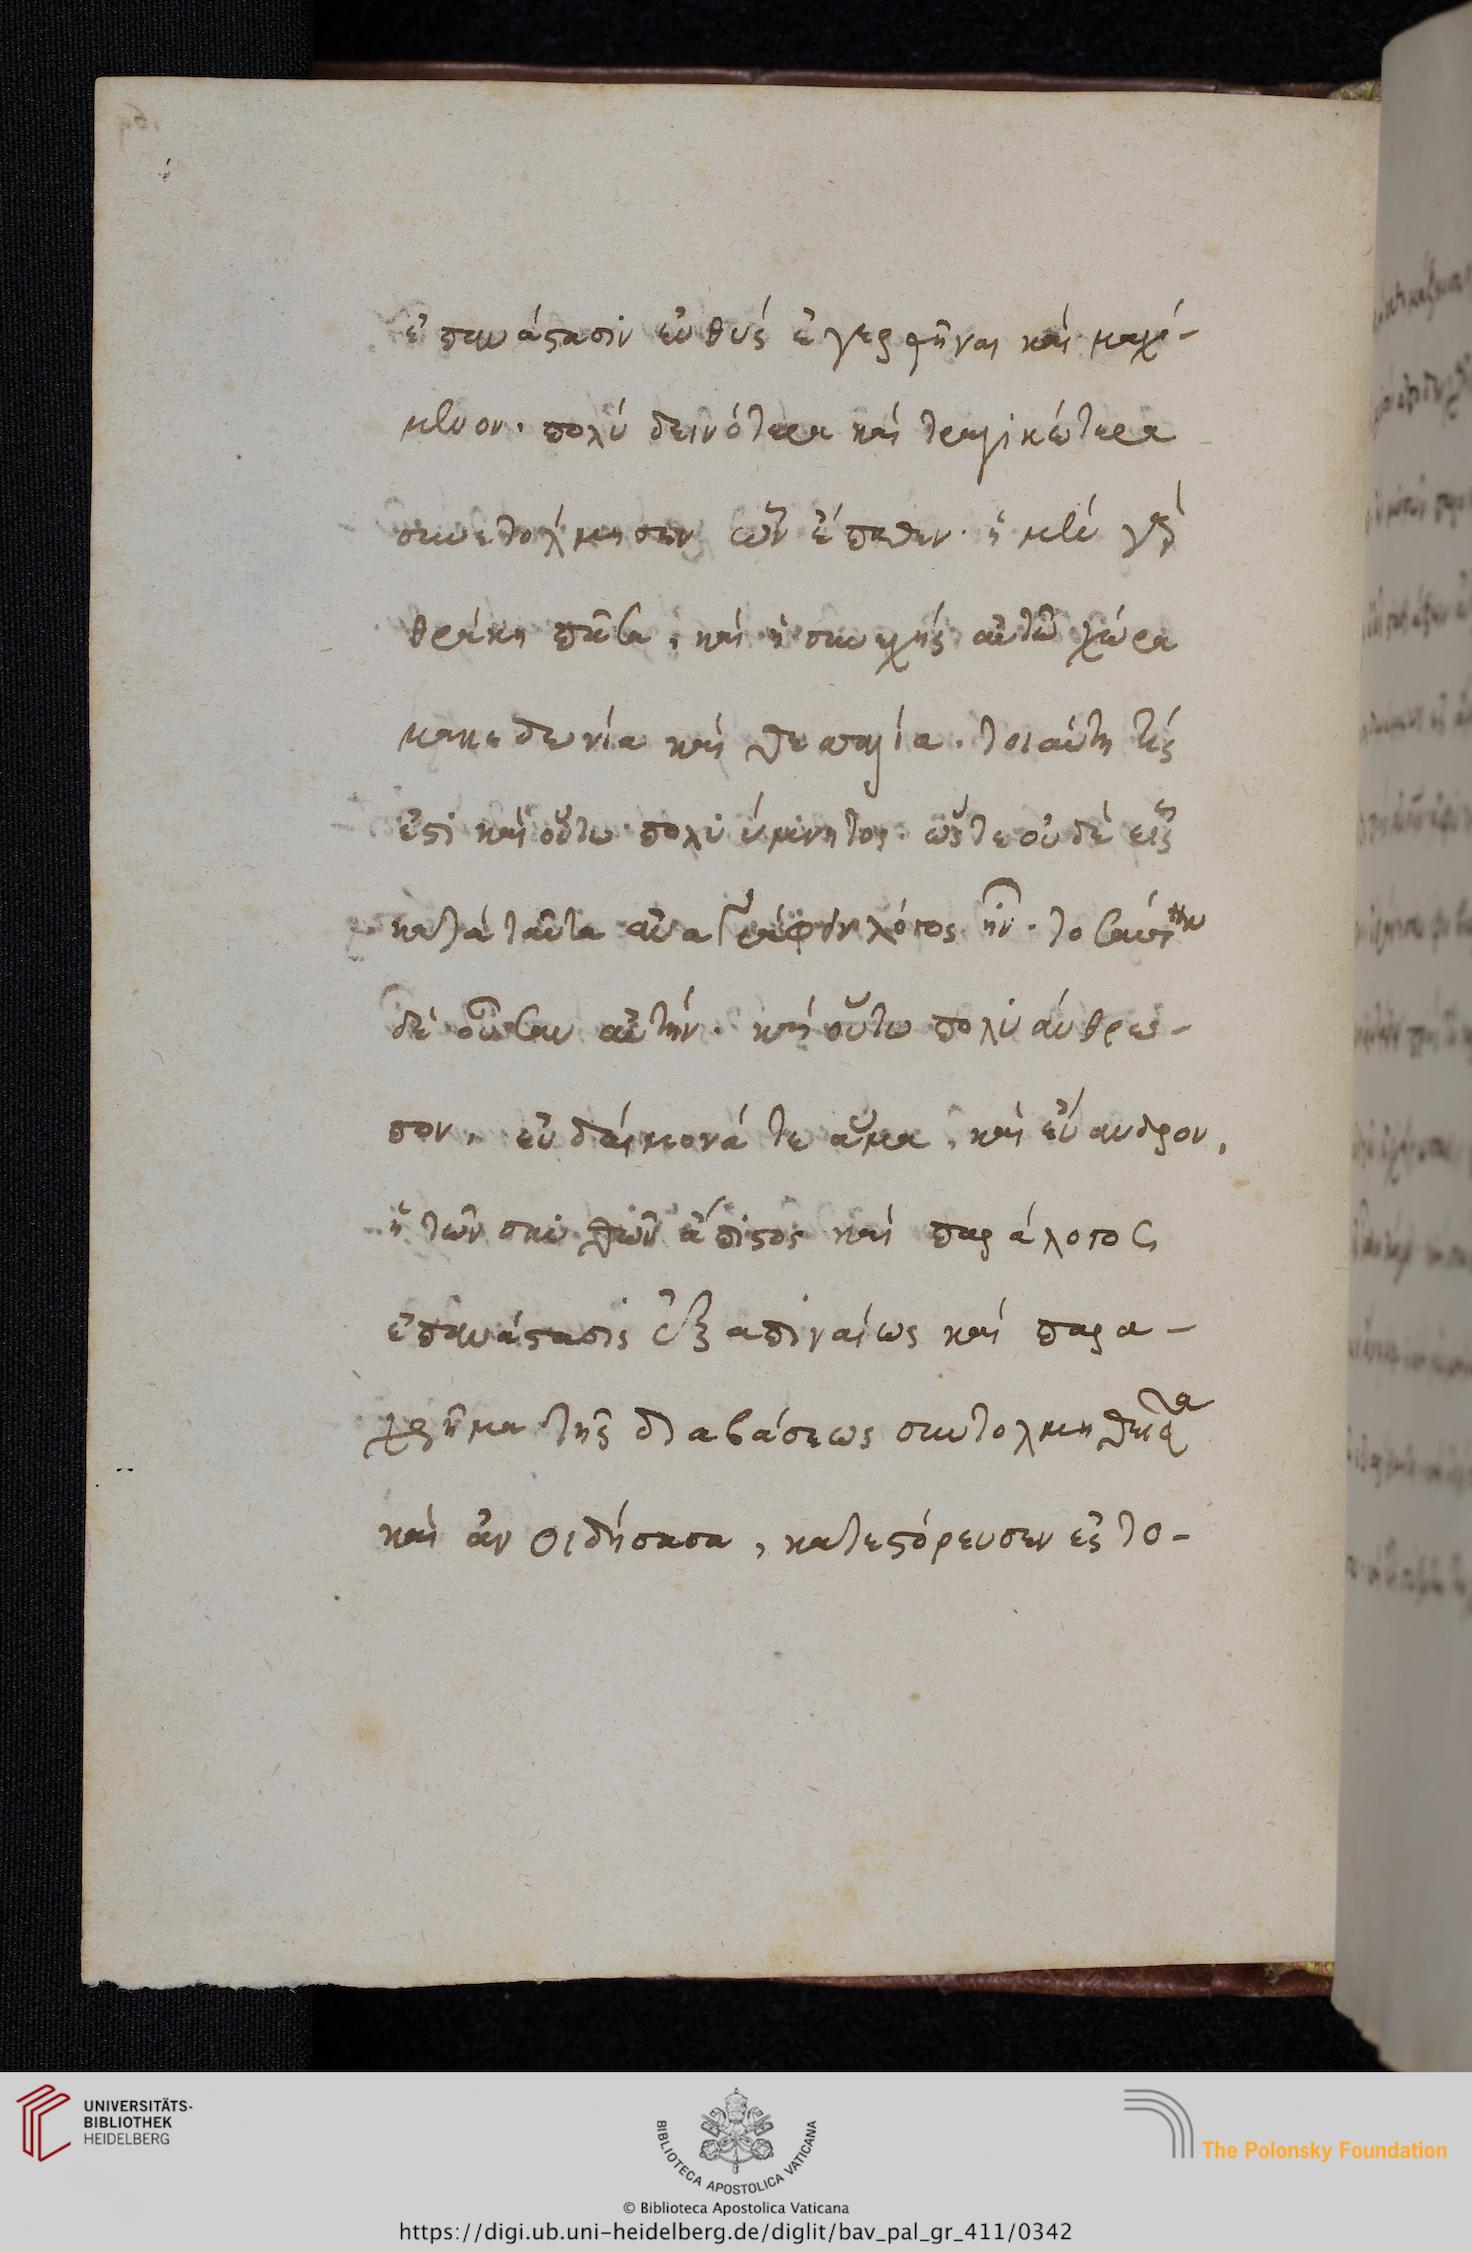 ἐπανάστασιν εὐθὺς ἐγερθῆναι καὶ μαχό-
μενον. πολὺ δεινότερα καὶ τραγικώτερα
συνετόλμησεν ὧν ἔπαθεν. ἡ μὲν γὰρ
θράκη πᾶσα, καὶ ἡ συνεχὴς αὐτῶ χώρα
μακεδονία καὶ θεσσαλία. τοιαύτη τίς
ἐστὶ καὶ οὕτω πολυύμνητος. ὥστε οὐδὲ εἷς
κατὰ ταῦτα ἀναγράφειν λόγος ἦν. τοσαύτην
δὲ οὖσαν αὐτὴν. καὶ οὕτω πολυάνθρω-
πον, εὐδαίμονά τε ἅμα, καὶ εὔανδρον,
ἡ τῶν σκυθῶν ἄπιστος καὶ παράλογος
ἐπανάστασις ἐξαπιναίως καὶ παρα-
χρῆμα τῆς διαβάσεως συντολμηθεῖσα
καὶ ἀνοιδήσασα, κατεστόρευσεν ἐς το-
UNIVERSITÄTS-
BIBLIOTHEK
HEIDELBERG
BIBLIOTECA APOSTOLICA VATICANA
The Polonsky Foundation
© Biblioteca Apostolica Vaticana
https://digi.ub.uni-heidelberg.de/diglit/bav_pal_gr_411/0342